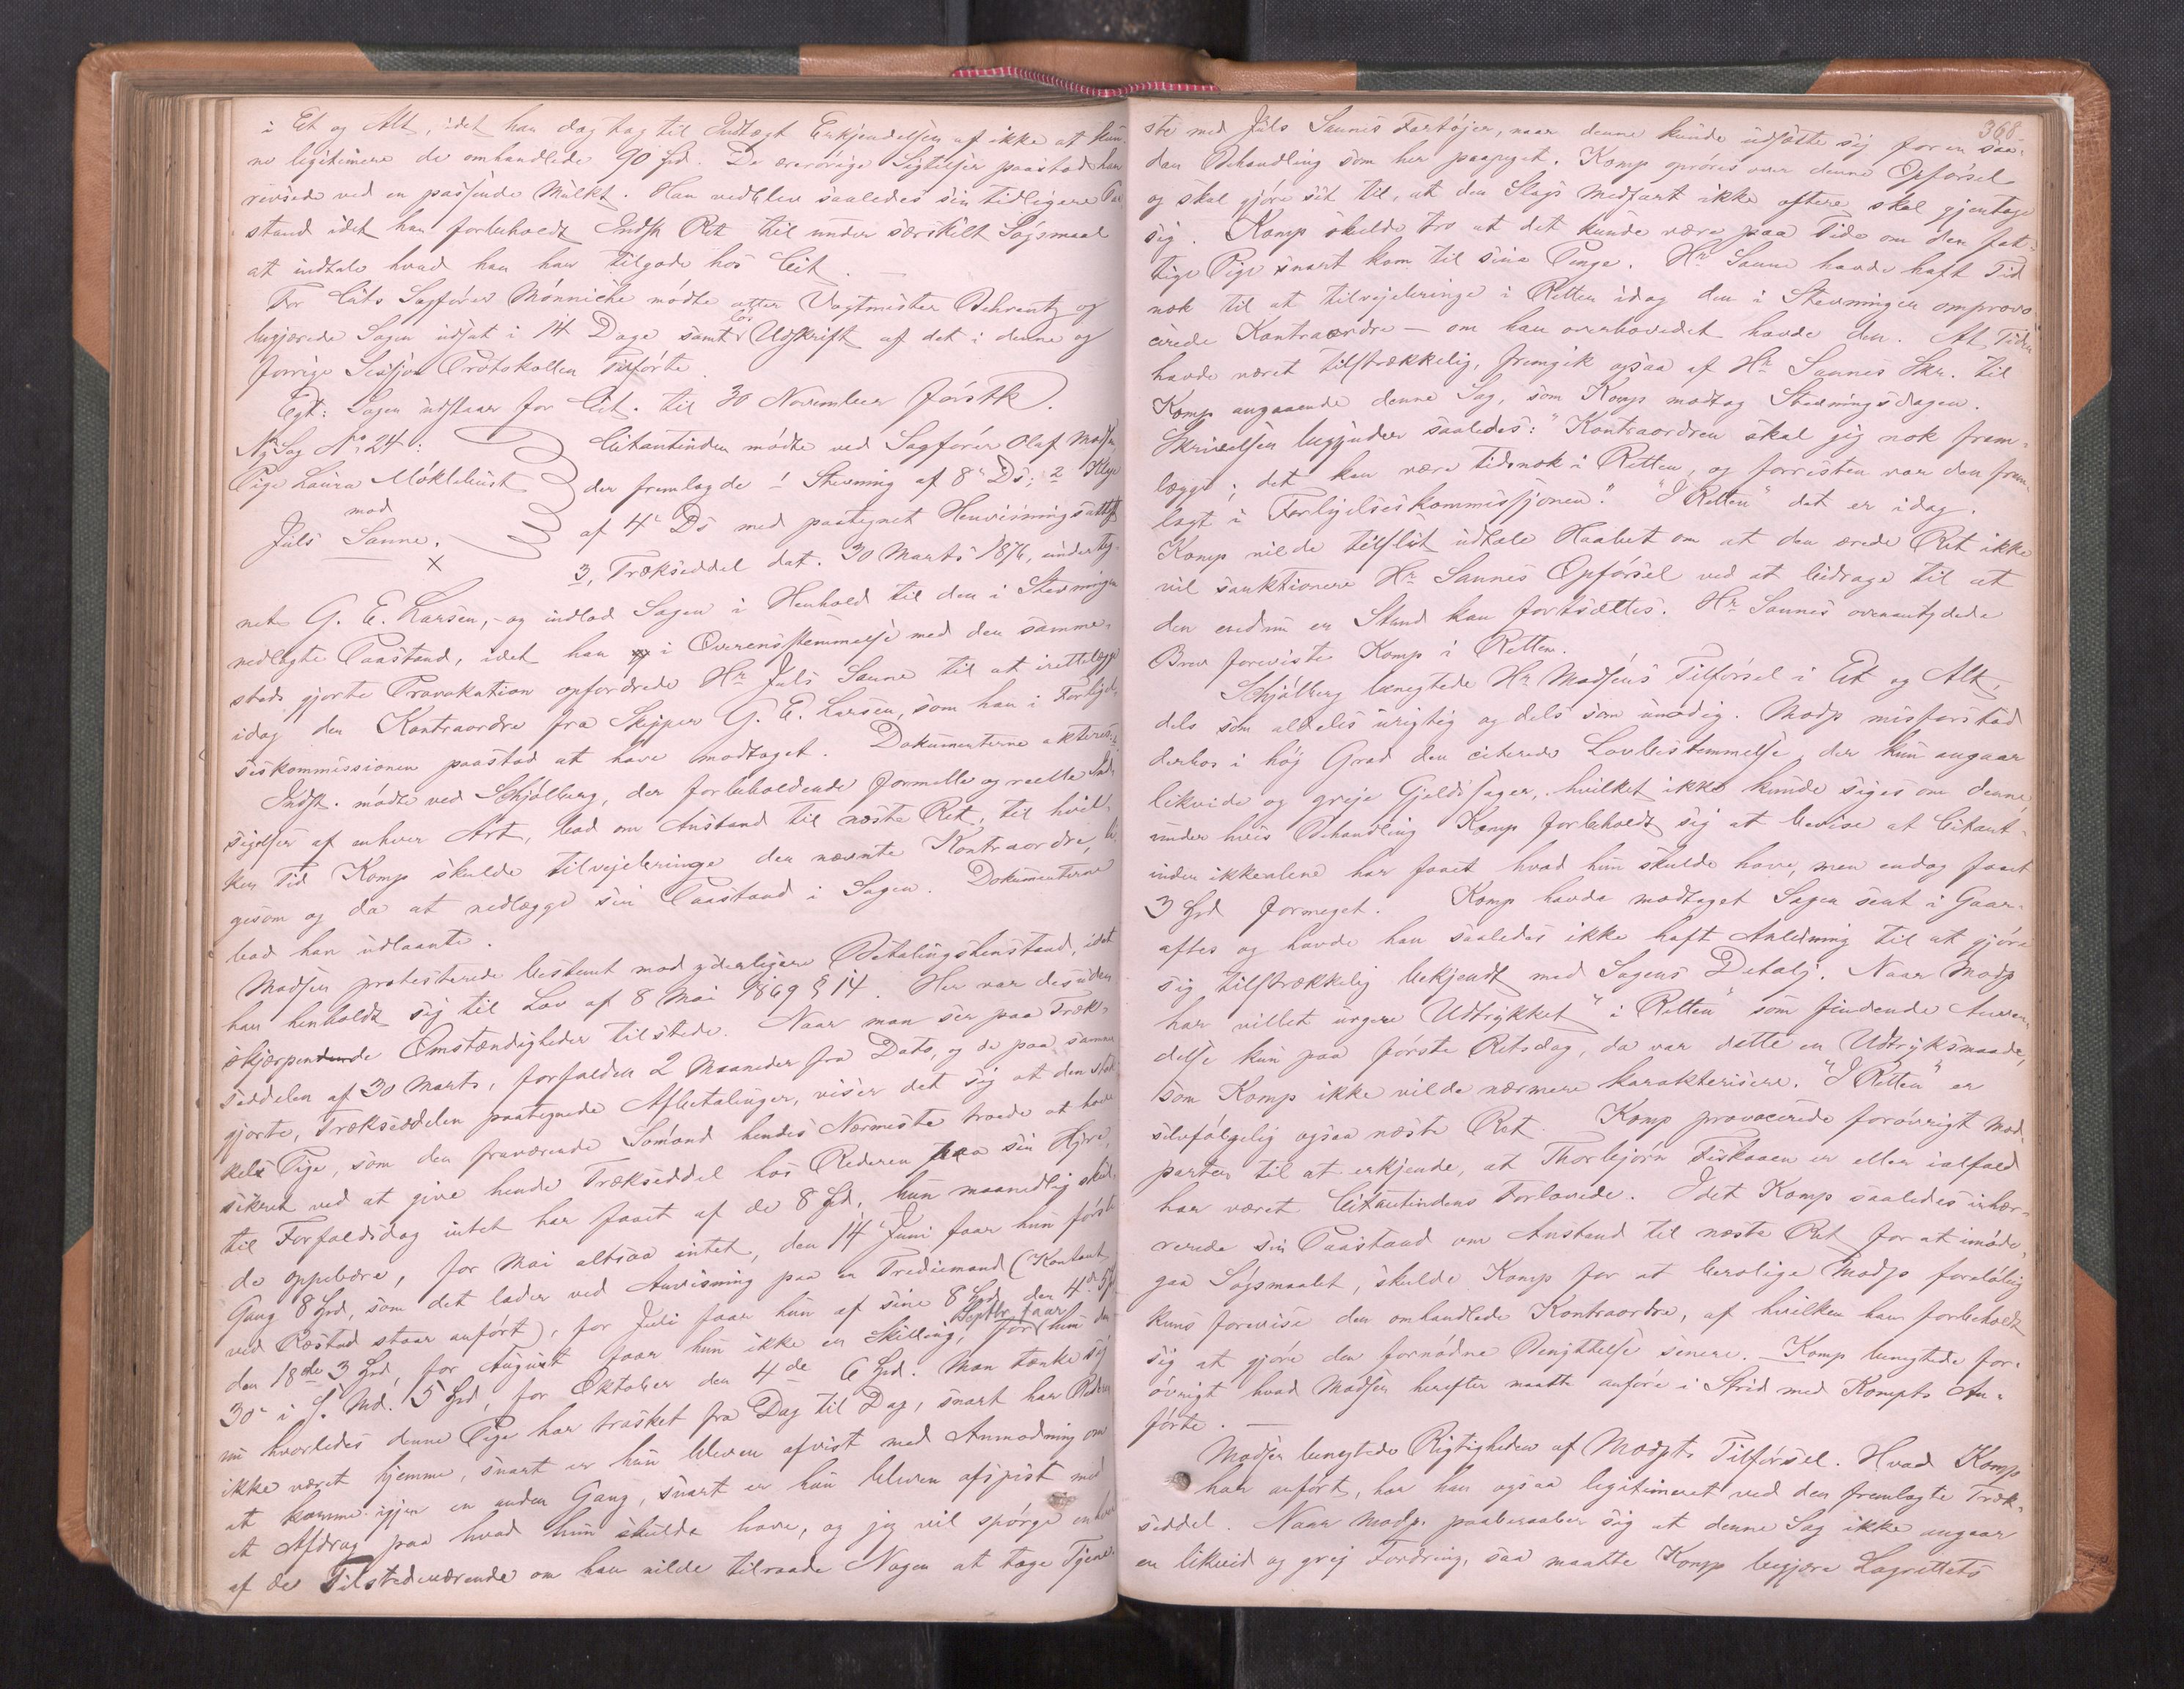 i Et og Alt, idet han dog tog til Indtægt Erkjendelsen af ikke at kun-
ne legitimere de omhandlede 90 Spd. De øvrige Sigtelser paastod han
revsede ved en passende Mulkt. Han vedblev saaledes sin tidligere Paa-
stand idet han forbeholdt Indst Ret til under særskilt Søgsmaal
at indtale hvad han har tilgode hos Cit.
For Cits Sagfører Mønniche mødte atter Vagtmester Behrentz og
begjærede Sagen udsat i 14 Dage samt Udskrift af det i denne og
forrige Session Protokollen Tilførte.
Eqt: Sagen udstaar for Cit. til 30 November førstk.
Ny Sag No 24: Citantinden mødte ved Sagfører Olaf Madsen,
Pige Laura Møklebust der fremlagde 1 Stevning af 8de Ds; 2 Klage
mod
Juls Sanne. af 4de Ds med paategnet Henvisningsattest
× 3, Trækseddel dat. 30 Marts 1876, underteg-
net G. E. Larsen, - og indlod Sagen i Henhold til den i Stevningen
nedlagte Paastand, idet han i Overensstemmelse med den samme-
steds gjorte Provokation opfordrede Hr Juls Sanne til at irettelægge
idag den Kontraordre fra Skipper G. E. Larsen, som han i Forligel-
seskommissionen paastod at have modtaget. Dokumenterne akteres.
Indst. mødte ved Schjølberg, der forbeholdende formelle og reelle Ind-
sigelser af enhver Art, bad om Anstand til næste Ret, til hvil-
ken Tid Komp skulde tilvejebringe den nævnte Kontraordre, li-
gesom og da at nedlægge sin Paastand i Sagen. Dokumenterne
bad han udlaante.
Madsen protesterede bestemt mod yderligere Betalingshenstand, idet
han henholdt sig til Lov af 8 Mai 1869 § 14. Her var desuden
skjærpende Omstændigheder tilstede. Naar man ser paa Træk-
seddelen af 30 Marts, forfalden 2 Maaneder fra Dato, og de paa samme
gjorte, Trækseddelen paategnede Afbetalinger, viser det sig at den stak-
kels Pige, som den fraværende Sømand hendes Nærmeste troede at have
sikret ved at give hende Trækseddel hos Rederen paa sin Hyre,
til Forfaldsdag intet har faaet af de 8 Spd, hun maanedlig skul-
de oppebære, for Mai altsaa intet, den 14de Juni faar hun første
Gang 8 Spd, som det lader ved Anvisning paa en Trediemand (Kontant
ved Røstad staar anført), for Juli faar hun af sine 8 Spd den 4de 5 Spd
den 18de 3 Spd, for August faar hun ikke en Skilling, for Septbr faar hun den
30te i s. Md. 5 Spd, for Oktober den 4de 6 Spd. Man tænke sig
nu hvorledes denne Pige har trasket fra Dag til Dag, snart har Rederen
ikke været hjemme, snart er hun bleven afvist med Anmodning om
at komme igjen en anden Gang, snart er hun bleven afspist med
et Afdrag paa hvad hun skulde have, og jeg vil spørge enhver
af de Tilstedeværende om han vilde tilraade Nogen at tage Tjene-
368.
ste med Juls Sannes Fartøjer, naar denne kunde udsætte sig for en saa-
dan Behandling som her paapeget. Komp oprøres over denne Opførsel
og skal gjøre sit til, at den Slags Medfart ikke oftere skal gjentage
sig. Komp skulde tro at det kunde være paa Tide om den fat-
tige Pige snart kom til sine Penge. Hr Sanne havde haft Tid
nok til at tilvejebringe i Retten idag den i Stevningen omprovo-
cerede Kontraordre – om han overhovedet havde den. At Tiden
havde været tilstrækkelig, fremgik ogsaa af Hr Sannes Skr. til
Komp angaaende denne Sag, som Komp modtog Stevningsdagen.
Skrivelsen begynder saaledes: "Kontraordren skal jeg nok frem-
lægge; det kan være tidsnok i Retten, og forresten var den frem-
lagt i Forligelseskommissjonen." "I Retten" det er idag.
Komp vilde tilslut udtale Haabet om at den ærede Ret ikke
vil sanktionere Hr Sannes Opførsel ved at bidrage til at
den endnu en Stund kan fortsættes. Hr Sannes ovenantydede
Brev foreviste Komp i Retten.
Schjølberg benegtede Hr Madsens Tilførsel i Et og Alt,
dels som aldeles urigtig og dels som unødig. Modp misforstod
derhos i høj Grad den citerede Lovbestemmelse, der kun angaar
likvide og greje Gjeldssager, hvilket ikke kunde siges om denne,
under hvis Behandling Komp forbeholdt sig at bevise at Citant-
inden ikkealene har faaet hvad hun skulde have, men endog faaet
3 Spd formeget. Komp havde modtaget Sagen sent i Gaar-
aftes og havde han saaledes ikke haft Anledning til at gjøre
sig tilstrækkelig bekjendt med Sagens Detalj. Naar Modp
har villet urgere Udtrykket "i Retten" som findende Anven-
delse kun paa første Retsdag, da var dette en Udtryksmaade,
som Komp ikke vilde nærmere karakterisere. "I Retten" er
selvfølgelig ogsaa næste Ret. Komp provocerede forøvrigt Mod-
parten til at erkjende, at Thorbjørn Fiskaaen er eller ialfald
har været Citantindens Forlovede. Idet Komp saaledes inhæ-
rerede sin Paastand om Anstand til næste Ret for at imøde-
gaa Søgsmaalet, skulde Komp for at berolige Modp foreløbig
kuns forevise den omhandlede Kontraordre, af hvilken han forbeholdt
sig at gjøre den fornødne Benyttelse senere. Komp benegtede for-
øvrigt hvad Madsen herefter maatte anføre i Strid med Kompts An-
førte. –
Madsen benegtede Rigtigheden af Modpts Tilførsel. Hvad Komp
har anført, har han ogsaa legitimeret ved den fremlagte Træk-
seddel. Naar Modp. paaberaaber sig at denne Sag ikke angaar
en likvid og grej Fordring, saa maatte Komp begjære Lagrettets